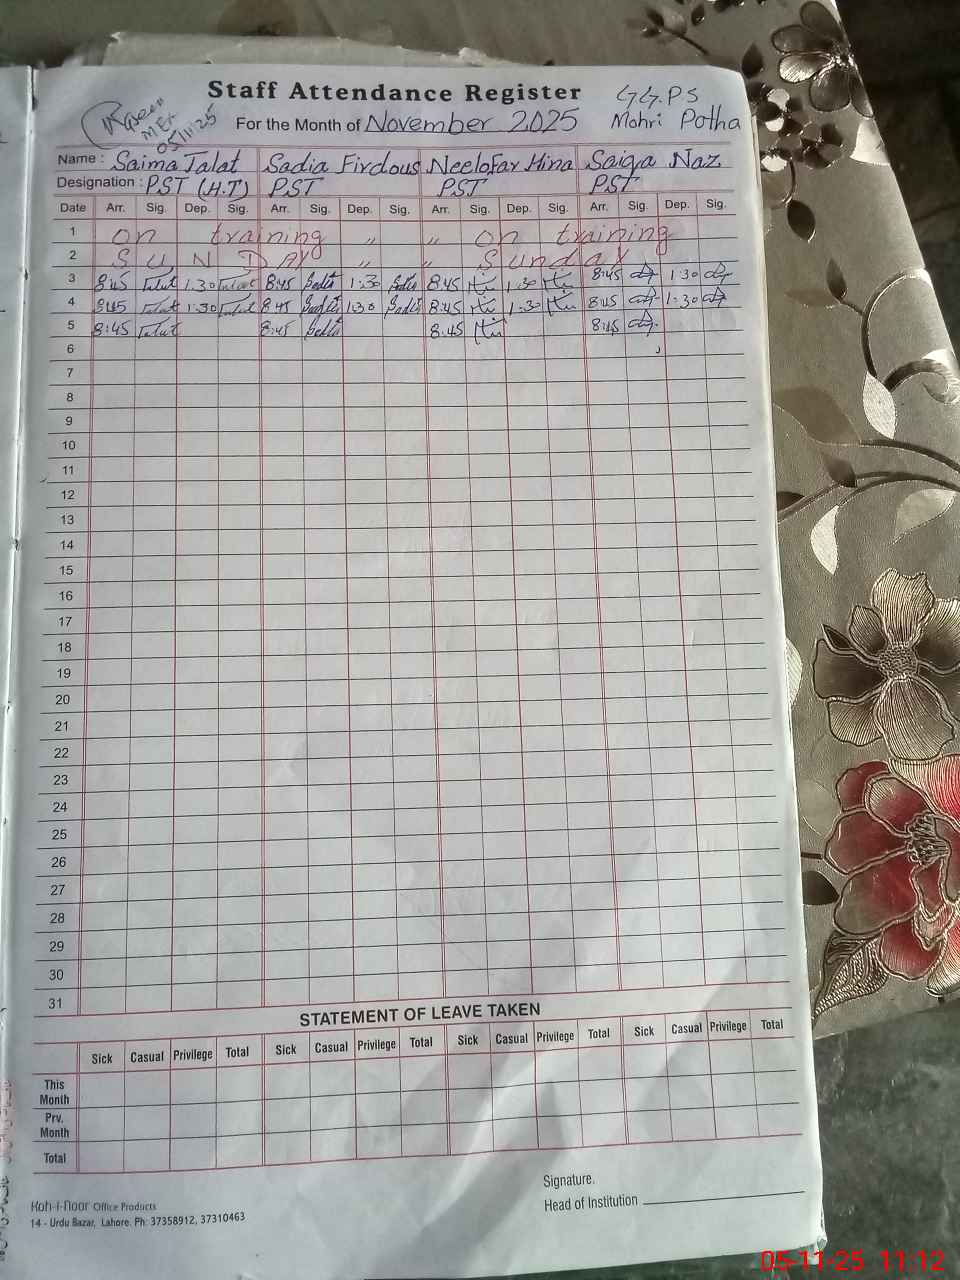 Staff Attendance Register
G.G.P.S
Mohri Potha
MEA
05/11/25
For the Month of November 2025
Name : Saima Talat Sadia Firdous Neelofar Hina Saiqa Naz
Designation : PST (H.T) PST PST PST
Date Arr. Sig. Dep. Sig. Arr. Sig. Dep. Sig. Arr. Sig. Dep. Sig. Arr. Sig. Dep. Sig.
1 on training " " on training
2 SUNDAY " " Sunday
3 8:45 Talat 1:30 Talat 8:45 Sadia 1:30 Sadia 8:45 حنا 1:30 حنا 8:45 1:30
4 8:45 Talat 1:30 Talat 8:45 Sadia 1:30 Sadia 8:45 حنا 1:30 حنا 8:45 1:30
5 8:45 Talat 8:45 Sadia 8:45 حنا 8:45
6
7
8
9
10
11
12
13
14
15
16
17
18
19
20
21
22
23
24
25
26
27
28
29
30
31
STATEMENT OF LEAVE TAKEN
Sick Casual Privilege Total Sick Casual Privilege Total Sick Casual Privilege Total Sick Casual Privilege Total
This Month
Prv. Month
Total
Signature.
Head of Institution
Koh-i-Noor Office Products
14 - Urdu Bazar, Lahore. Ph: 37358912, 37310463
05-11-25 11:12